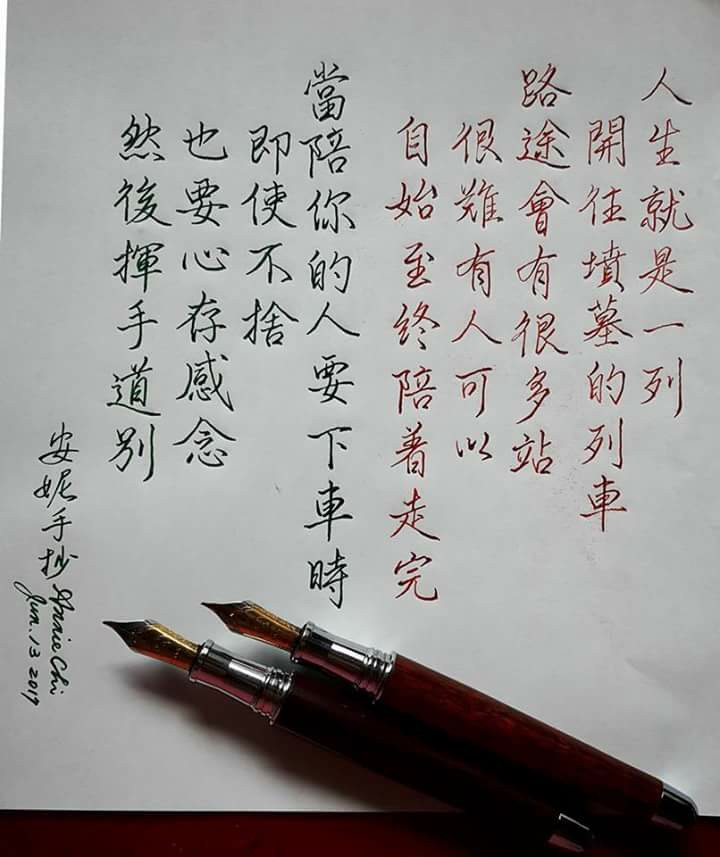 人生就是一列
開往墳墓的列車
路途會有很多站
很難有人可以
自始至終陪着走完
當陪你的人要下車時
即使不捨
也要心存感念
然後揮手道別
安妮手抄 Annie Chi
Jun. 13 2017